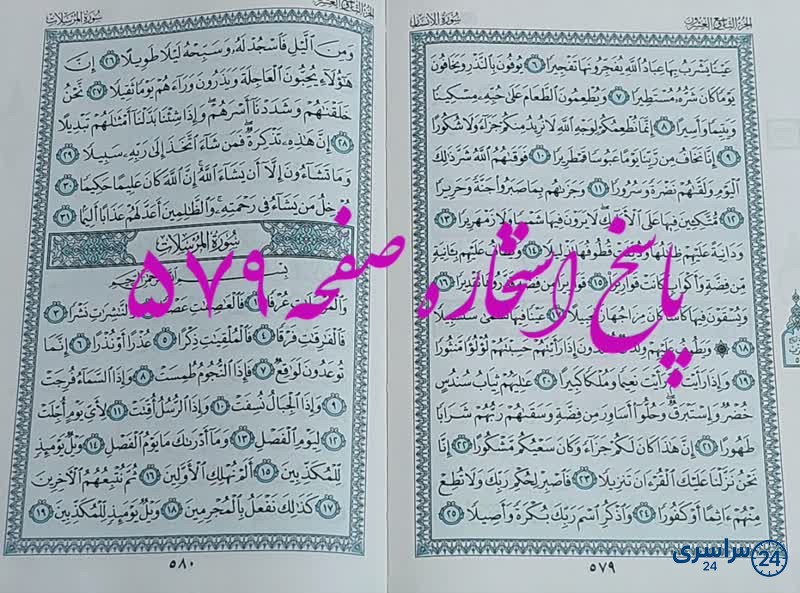 سُورَةُ الإنسَان
الجُزءُ التَّاسِعُ وَالعِشرُونَ
عَيْنًا يَشْرَبُ بِهَا عِبَادُ اللَّهِ يُفَجِّرُونَهَا تَفْجِيرًا ٦ يُوفُونَ بِالنَّذْرِ وَيَخَافُونَ
يَوْمًا كَانَ شَرُّهُ مُسْتَطِيرًا ٧ وَيُطْعِمُونَ الطَّعَامَ عَلَىٰ حُبِّهِ مِسْكِينًا
وَيَتِيمًا وَأَسِيرًا ٨ إِنَّمَا نُطْعِمُكُمْ لِوَجْهِ اللَّهِ لَا نُرِيدُ مِنكُمْ جَزَاءً وَلَا شُكُورًا
٩ إِنَّا نَخَافُ مِن رَّبِّنَا يَوْمًا عَبُوسًا قَمْطَرِيرًا ١٠ فَوَقَىٰهُمُ اللَّهُ شَرَّ ذَٰلِكَ
الْيَوْمِ وَلَقَّىٰهُمْ نَضْرَةً وَسُرُورًا ١١ وَجَزَىٰهُم بِمَا صَبَرُوا جَنَّةً وَحَرِيرًا
١٢ مُّتَّكِـِٔينَ فِيهَا عَلَى الْأَرَائِكِ لَا يَرَوْنَ فِيهَا شَمْسًا وَلَا زَمْهَرِيرًا ١٣
وَدَانِيَةً عَلَيْهِمْ ظِلَٰلُهَا وَذُلِّلَتْ قُطُوفُهَا تَذْلِيلًا ١٤ وَيُطَافُ عَلَيْهِم بِـَٔانِيَةٍ
مِّن فِضَّةٍ وَأَكْوَابٍ كَانَتْ قَوَارِيرَا ١٥ قَوَارِيرَا مِن فِضَّةٍ قَدَّرُوهَا تَقْدِيرًا ١٦
وَيُسْقَوْنَ فِيهَا كَأْسًا كَانَ مِزَاجُهَا زَنجَبِيلًا ١٧ عَيْنًا فِيهَا تُسَمَّىٰ سَلْسَبِيلًا
١٨ وَيَطُوفُ عَلَيْهِمْ وِلْدَٰنٌ مُّخَلَّدُونَ إِذَا رَأَيْتَهُمْ حَسِبْتَهُمْ لُؤْلُؤًا مَّنثُورًا
١٩ وَإِذَا رَأَيْتَ ثَمَّ رَأَيْتَ نَعِيمًا وَمُلْكًا كَبِيرًا ٢٠ عَٰلِيَهُمْ ثِيَابُ سُندُسٍ
خُضْرٌ وَإِسْتَبْرَقٌ وَحُلُّوا أَسَاوِرَ مِن فِضَّةٍ وَسَقَىٰهُمْ رَبُّهُمْ شَرَابًا
طَهُورًا ٢١ إِنَّ هَٰذَا كَانَ لَكُمْ جَزَاءً وَكَانَ سَعْيُكُم مَّشْكُورًا ٢٢ إِنَّا
نَحْنُ نَزَّلْنَا عَلَيْكَ الْقُرْءَانَ تَنزِيلًا ٢٣ فَاصْبِرْ لِحُكْمِ رَبِّكَ وَلَا تُطِعْ
مِنْهُمْ ءَاثِمًا أَوْ كَفُورًا ٢٤ وَاذْكُرِ اسْمَ رَبِّكَ بُكْرَةً وَأَصِيلًا ٢٥
٥٧٩
الجُزءُ التَّاسِعُ وَالعِشرُونَ
سُورَةُ المُرسَلات
وَمِنَ الَّيْلِ فَاسْجُدْ لَهُ وَسَبِّحْهُ لَيْلًا طَوِيلًا ٢٦ إِنَّ
هَٰؤُلَاءِ يُحِبُّونَ الْعَاجِلَةَ وَيَذَرُونَ وَرَاءَهُمْ يَوْمًا ثَقِيلًا ٢٧ نَّحْنُ
خَلَقْنَٰهُمْ وَشَدَدْنَا أَسْرَهُمْ وَإِذَا شِئْنَا بَدَّلْنَا أَمْثَٰلَهُمْ تَبْدِيلًا
٢٨ إِنَّ هَٰذِهِ تَذْكِرَةٌ فَمَن شَاءَ اتَّخَذَ إِلَىٰ رَبِّهِ سَبِيلًا ٢٩
وَمَا تَشَاءُونَ إِلَّا أَن يَشَاءَ اللَّهُ إِنَّ اللَّهَ كَانَ عَلِيمًا حَكِيمًا ٣٠
يُدْخِلُ مَن يَشَاءُ فِي رَحْمَتِهِ وَالظَّٰلِمِينَ أَعَدَّ لَهُمْ عَذَابًا أَلِيمًا ٣١
سُورَةُ المُرسَلات
بِسْمِ اللَّهِ الرَّحْمَٰنِ الرَّحِيمِ
وَالْمُرْسَلَٰتِ عُرْفًا ١ فَالْعَٰصِفَٰتِ عَصْفًا ٢ وَالنَّٰشِرَٰتِ نَشْرًا ٣
فَالْفَٰرِقَٰتِ فَرْقًا ٤ فَالْمُلْقِيَٰتِ ذِكْرًا ٥ عُذْرًا أَوْ نُذْرًا ٦ إِنَّمَا
تُوعَدُونَ لَوَٰقِعٌ ٧ فَإِذَا النُّجُومُ طُمِسَتْ ٨ وَإِذَا السَّمَاءُ فُرِجَتْ
٩ وَإِذَا الْجِبَالُ نُسِفَتْ ١٠ وَإِذَا الرُّسُلُ أُقِّتَتْ ١١ لِأَيِّ يَوْمٍ أُجِّلَتْ
١٢ لِيَوْمِ الْفَصْلِ ١٣ وَمَا أَدْرَىٰكَ مَا يَوْمُ الْفَصْلِ ١٤ وَيْلٌ يَوْمَئِذٍ
لِّلْمُكَذِّبِينَ ١٥ أَلَمْ نُهْلِكِ الْأَوَّلِينَ ١٦ ثُمَّ نُتْبِعُهُمُ الْـَٔاخِرِينَ
١٧ كَذَٰلِكَ نَفْعَلُ بِالْمُجْرِمِينَ ١٨ وَيْلٌ يَوْمَئِذٍ لِّلْمُكَذِّبِينَ ١٩
٥٨٠
پاسخ استخاره صفحه ۵۷۹
سراسری 24
24